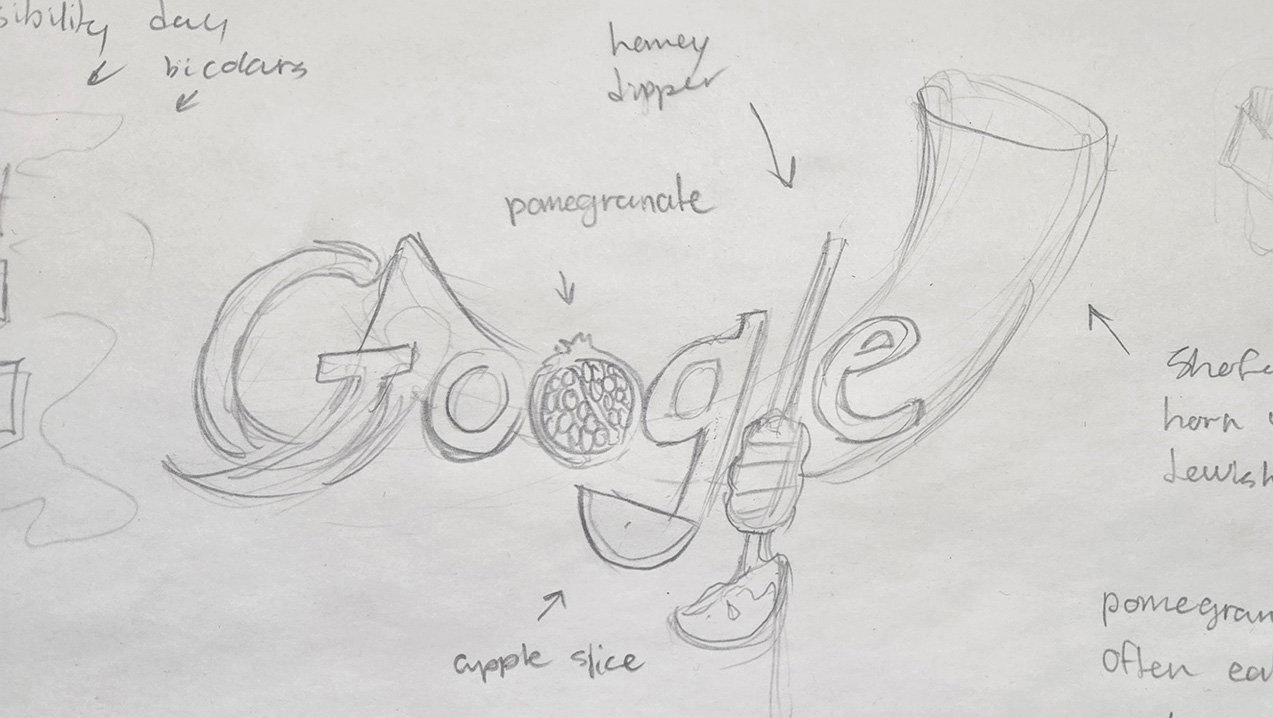 sibility day
bicolars
honey
dipper
pomegranate
Google
Shofa
horn
Jewish
apple slice
pomegran
often ea